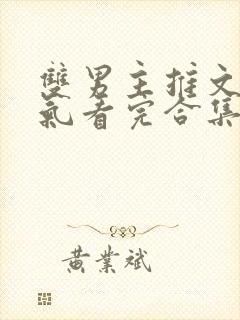 雙男主推文
氣看完合集
黃業斌